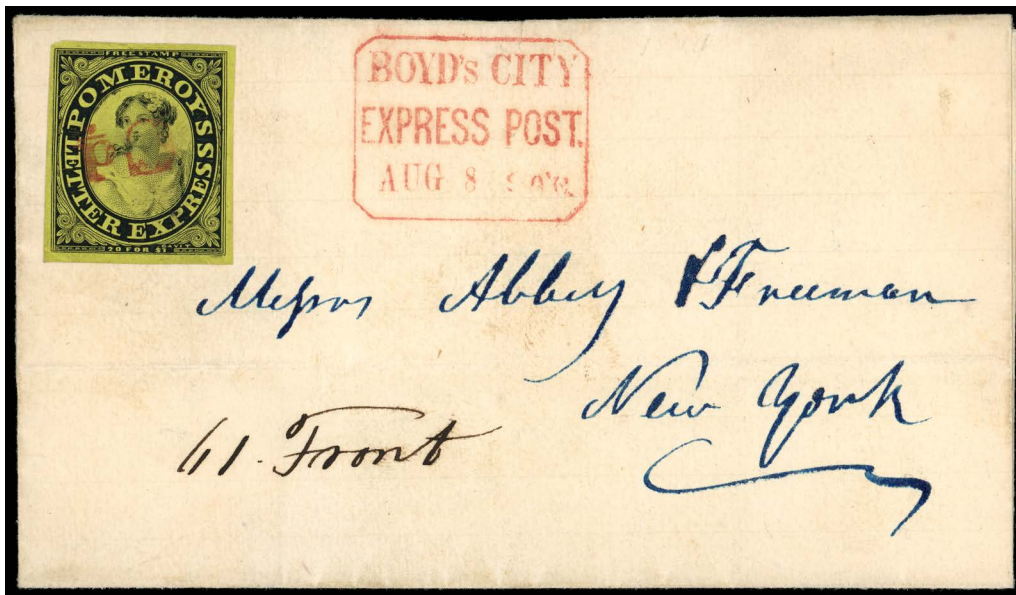 FREE STAMP
POMEROY'S
LETTER EXPRESS
20 FOR $1
BOYD'S CITY
EXPRESS POST.
AUG 8
Messrs Abbey & Freeman
New York
61. Front